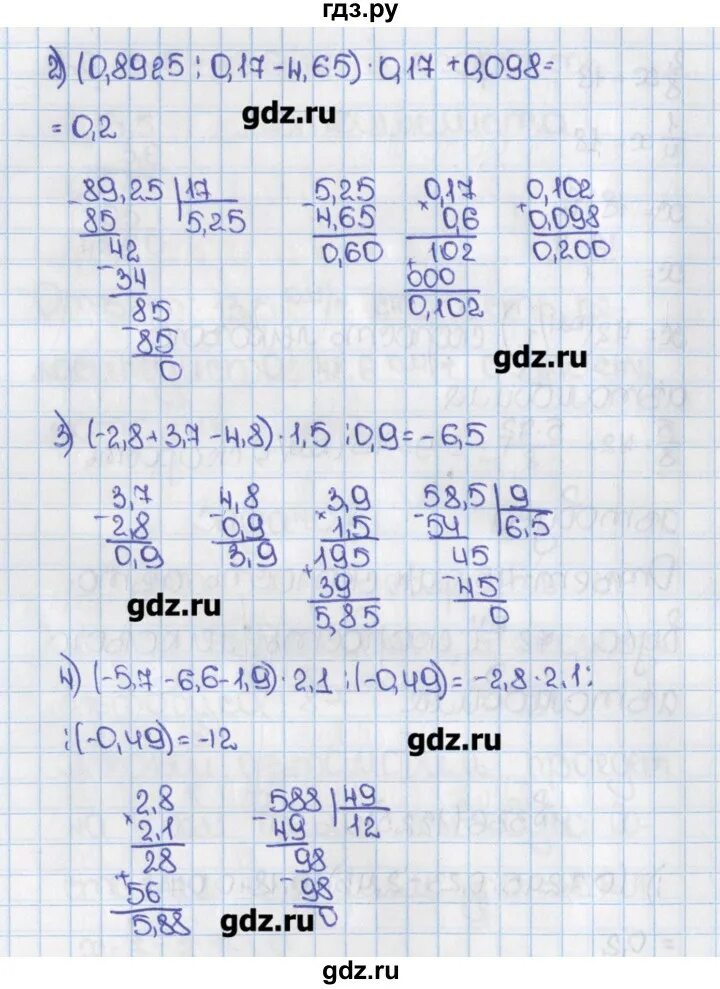 гдз.ру
2) (0,8925 : 0,17 - 4,65) · 0,17 + 0,098 =
= 0,2
gdz.ru
- 89,25 | 17
85 5,25
42
- 34
85
- 85
0
- 5,25
4,65
0,60
0,17
× 0,6
102
+ 000
0,102
0,102
+ 0,098
0,200
gdz.ru
3) (-2,8 + 3,7 - 4,8) · 1,5 : 0,9 = -6,5
3,7
- 2,8
0,9
4,8
- 0,9
3,9
3,9
× 1,5
195
+ 39
5,85
58,5 | 9
- 54 6,5
45
- 45
0
gdz.ru
4) (-5,7 - 6,6 - 1,9) · 2,1 : (-0,49) = -2,8 · 2,1 :
: (-0,49) = -12
gdz.ru
2,8
× 2,1
28
+ 56
5,88
588 | 49
- 49 12
98
- 98
0
gdz.ru
gdz.ru